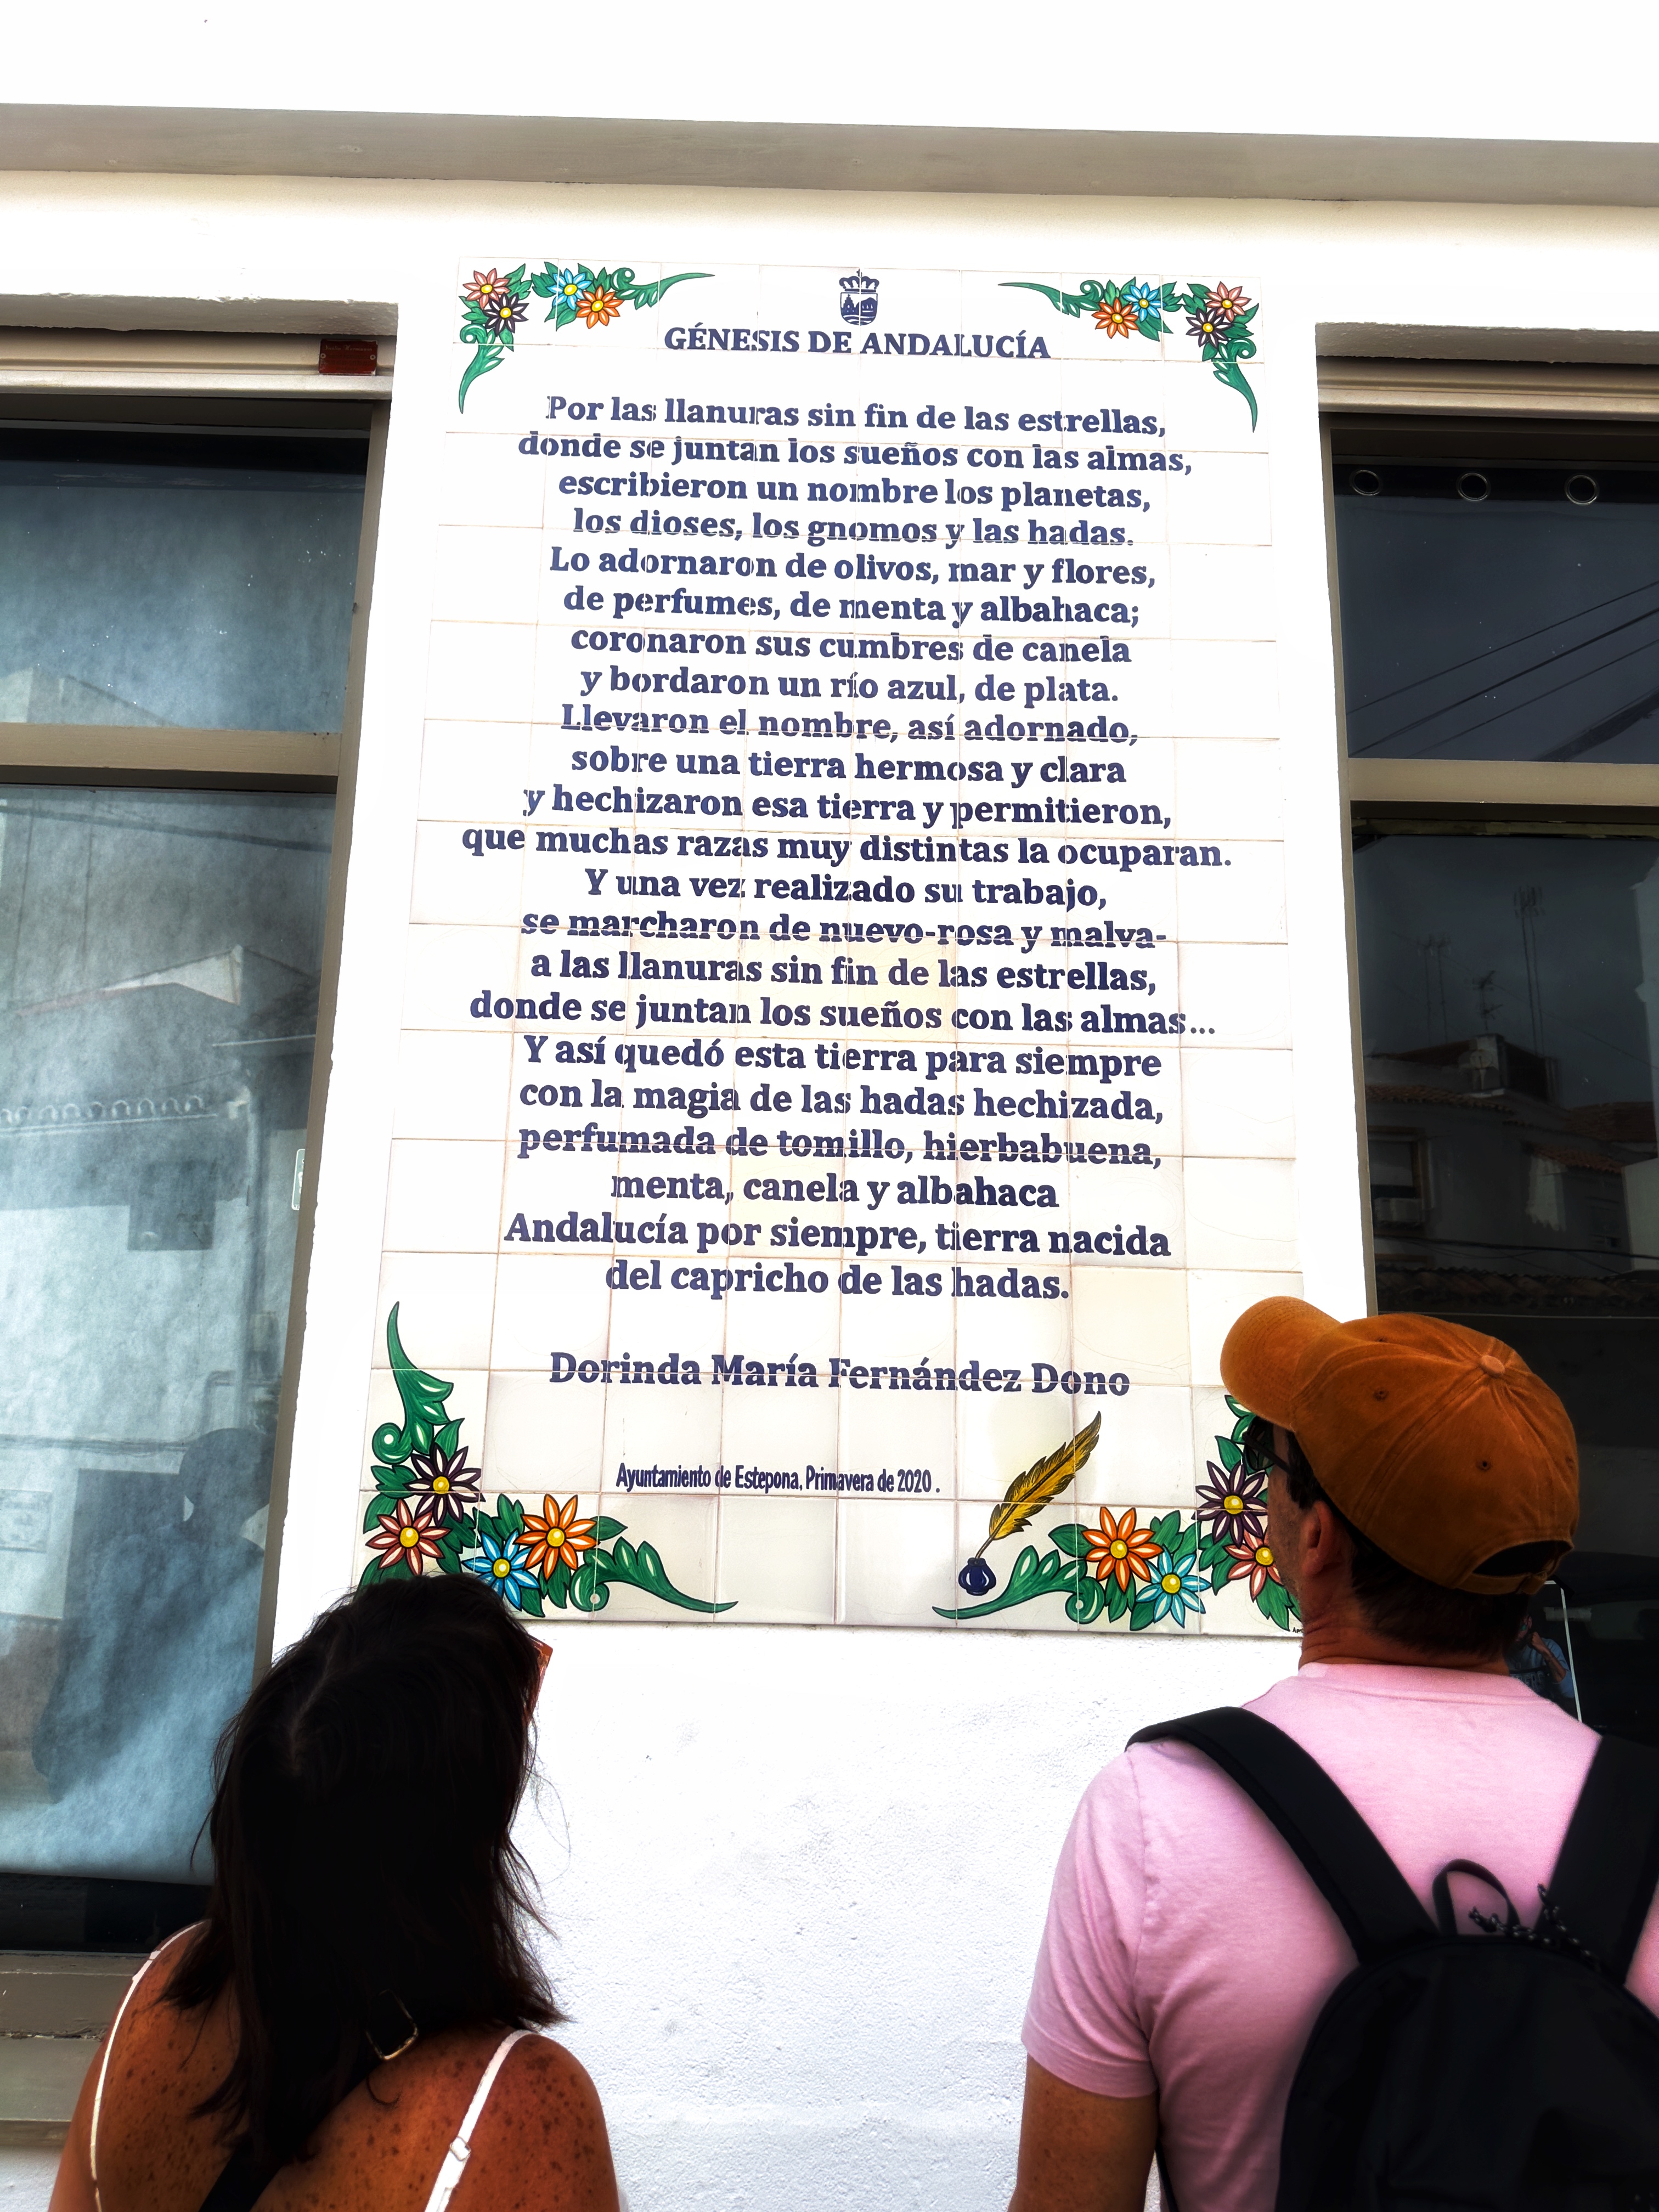 GÉNESIS DE ANDALUCÍA
Por las llanuras sin fin de las estrellas,
donde se juntan los sueños con las almas,
escribieron un nombre los planetas,
los dioses, los gnomos y las hadas.
Lo adornaron de olivos, mar y flores,
de perfumes, de menta y albahaca;
coronaron sus cumbres de canela
y bordaron un río azul, de plata.
Llevaron el nombre, así adornado,
sobre una tierra hermosa y clara
y hechizaron esa tierra y permitieron,
que muchas razas muy distintas la ocuparan.
Y una vez realizado su trabajo,
se marcharon de nuevo-rosa y malva-
a las llanuras sin fin de las estrellas,
donde se juntan los sueños con las almas...
Y así quedó esta tierra para siempre
con la magia de las hadas hechizada,
perfumada de tomillo, hierbabuena,
menta, canela y albahaca
Andalucía por siempre, tierra nacida
del capricho de las hadas.
Dorinda María Fernández Dono
Ayuntamiento de Estepona, Primavera de 2020.